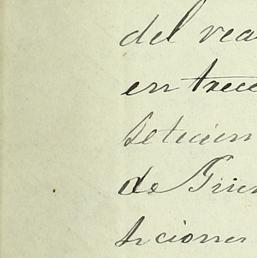 del rea
en trece
setecien
de Grie
siciones